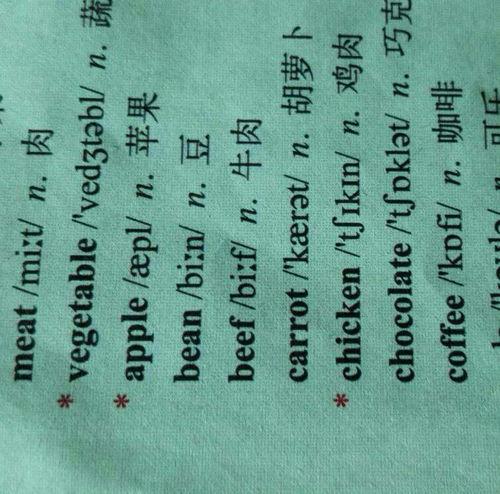 meat /miːt/ n. 肉
* vegetable /'vedʒtəbl/ n. 蔬
* apple /æpl/ n. 苹果
bean /biːn/ n. 豆
beef /biːf/ n. 牛肉
carrot /'kærət/ n. 胡萝卜
* chicken /'tʃɪkɪn/ n. 鸡肉
chocolate /'tʃɒklət/ n. 巧克
coffee /'kɒfi/ n. 咖啡